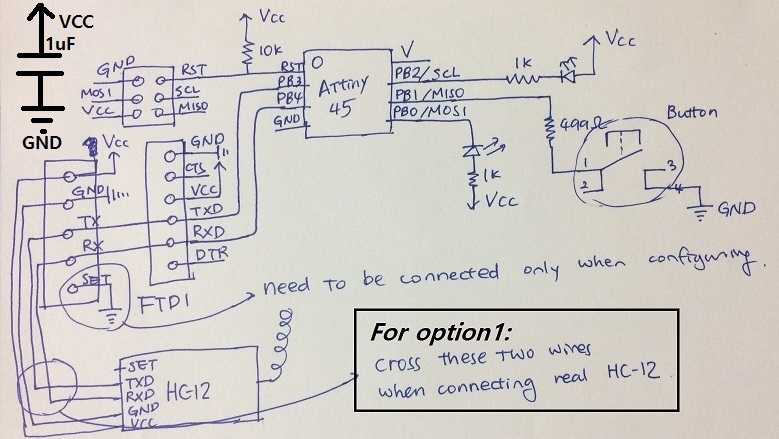 VCC
1uF
GND
Vcc
10K
GND
RST
MOSI
SCL
VCC
MISO
RST
PB3
PB4
GND
ATtiny
45
V
PB2/SCL
PB1/MISO
PB0/MOSI
1K
Vcc
499Ω
Button
1
2
3
4
GND
1K
Vcc
Vcc
GND
TX
RX
SET
GND
CTS
VCC
TXD
RXD
DTR
FTDI
need to be connected only when configuring.
SET
TXD
RXD
GND
VCC
HC-12
For option1:
cross these two wires
when connecting real HC-12